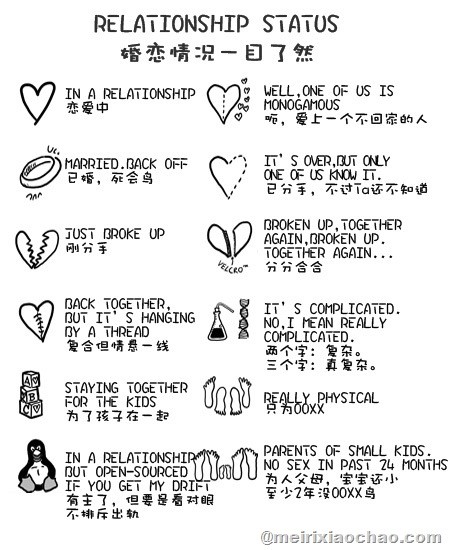 RELATIONSHIP STATUS
婚恋情况一目了然
IN A RELATIONSHIP
恋爱中
WELL,ONE OF US IS
MONOGAMOUS
呃，爱上一个不回家的人
UC.
MARRIED.BACK OFF
已婚，死会鸟
IT'S OVER,BUT ONLY
ONE OF US KNOW IT.
已分手，不过Ta还不知道
JUST BROKE UP
刚分手
VELCRO™
BROKEN UP,TOGETHER
AGAIN,BROKEN UP.
TOGETHER AGAIN...
分分合合
BACK TOGETHER,
BUT IT'S HANGING
BY A THREAD
复合但情悬一线
IT'S COMPLICATED.
NO,I MEAN REALLY
COMPLICATED.
两个字：复杂。
三个字：真复杂。
A
B
C
STAYING TOGETHER
FOR THE KIDS
为了孩子在一起
REALLY PHYSICAL
只为OOXX
IN A RELATIONSHIP
BUT OPEN-SOURCED
IF YOU GET MY DRIFT
有主了，但要是看对眼
不排斥出轨
PARENTS OF SMALL KIDS.
NO SEX IN PAST 24 MONTHS
为人父母，宝宝还小
至少2年没OOXX鸟
@meirixiaochao.com